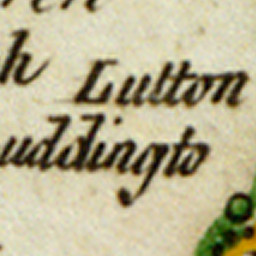 h Lutton
uddingto